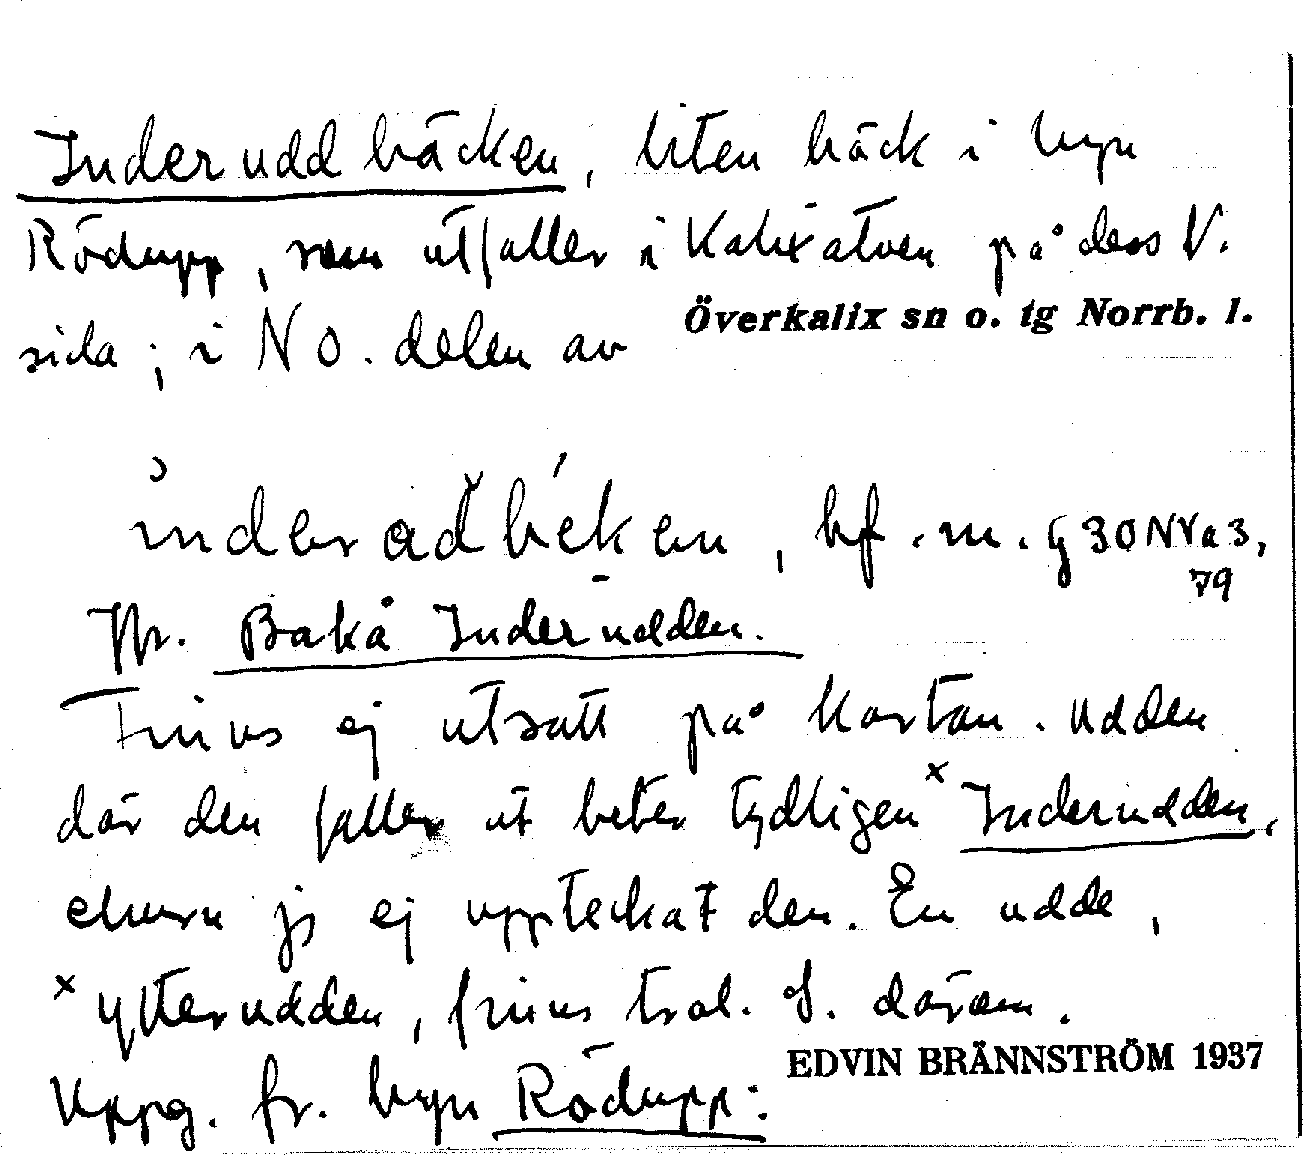 Inderuddbäcken, liten bäck i byn
Rödupp, som utfaller i Kalixälven på dess V.
sida; i NO. delen av Överkalix sn o. tg Norrb. l.
inderadbeken, bf. m.
Jfr. Bakå Inderudden.
Finns ej utsatt på kartan. Udden
där den faller ut heter tydligen × Inderudden,
churu jg ej upptecknat den. En udde,
× Ytterudden, finns tral. S. därom.
Uppg. fr. byn Rödupp.
EDVIN BRÄNNSTRÖM 1937